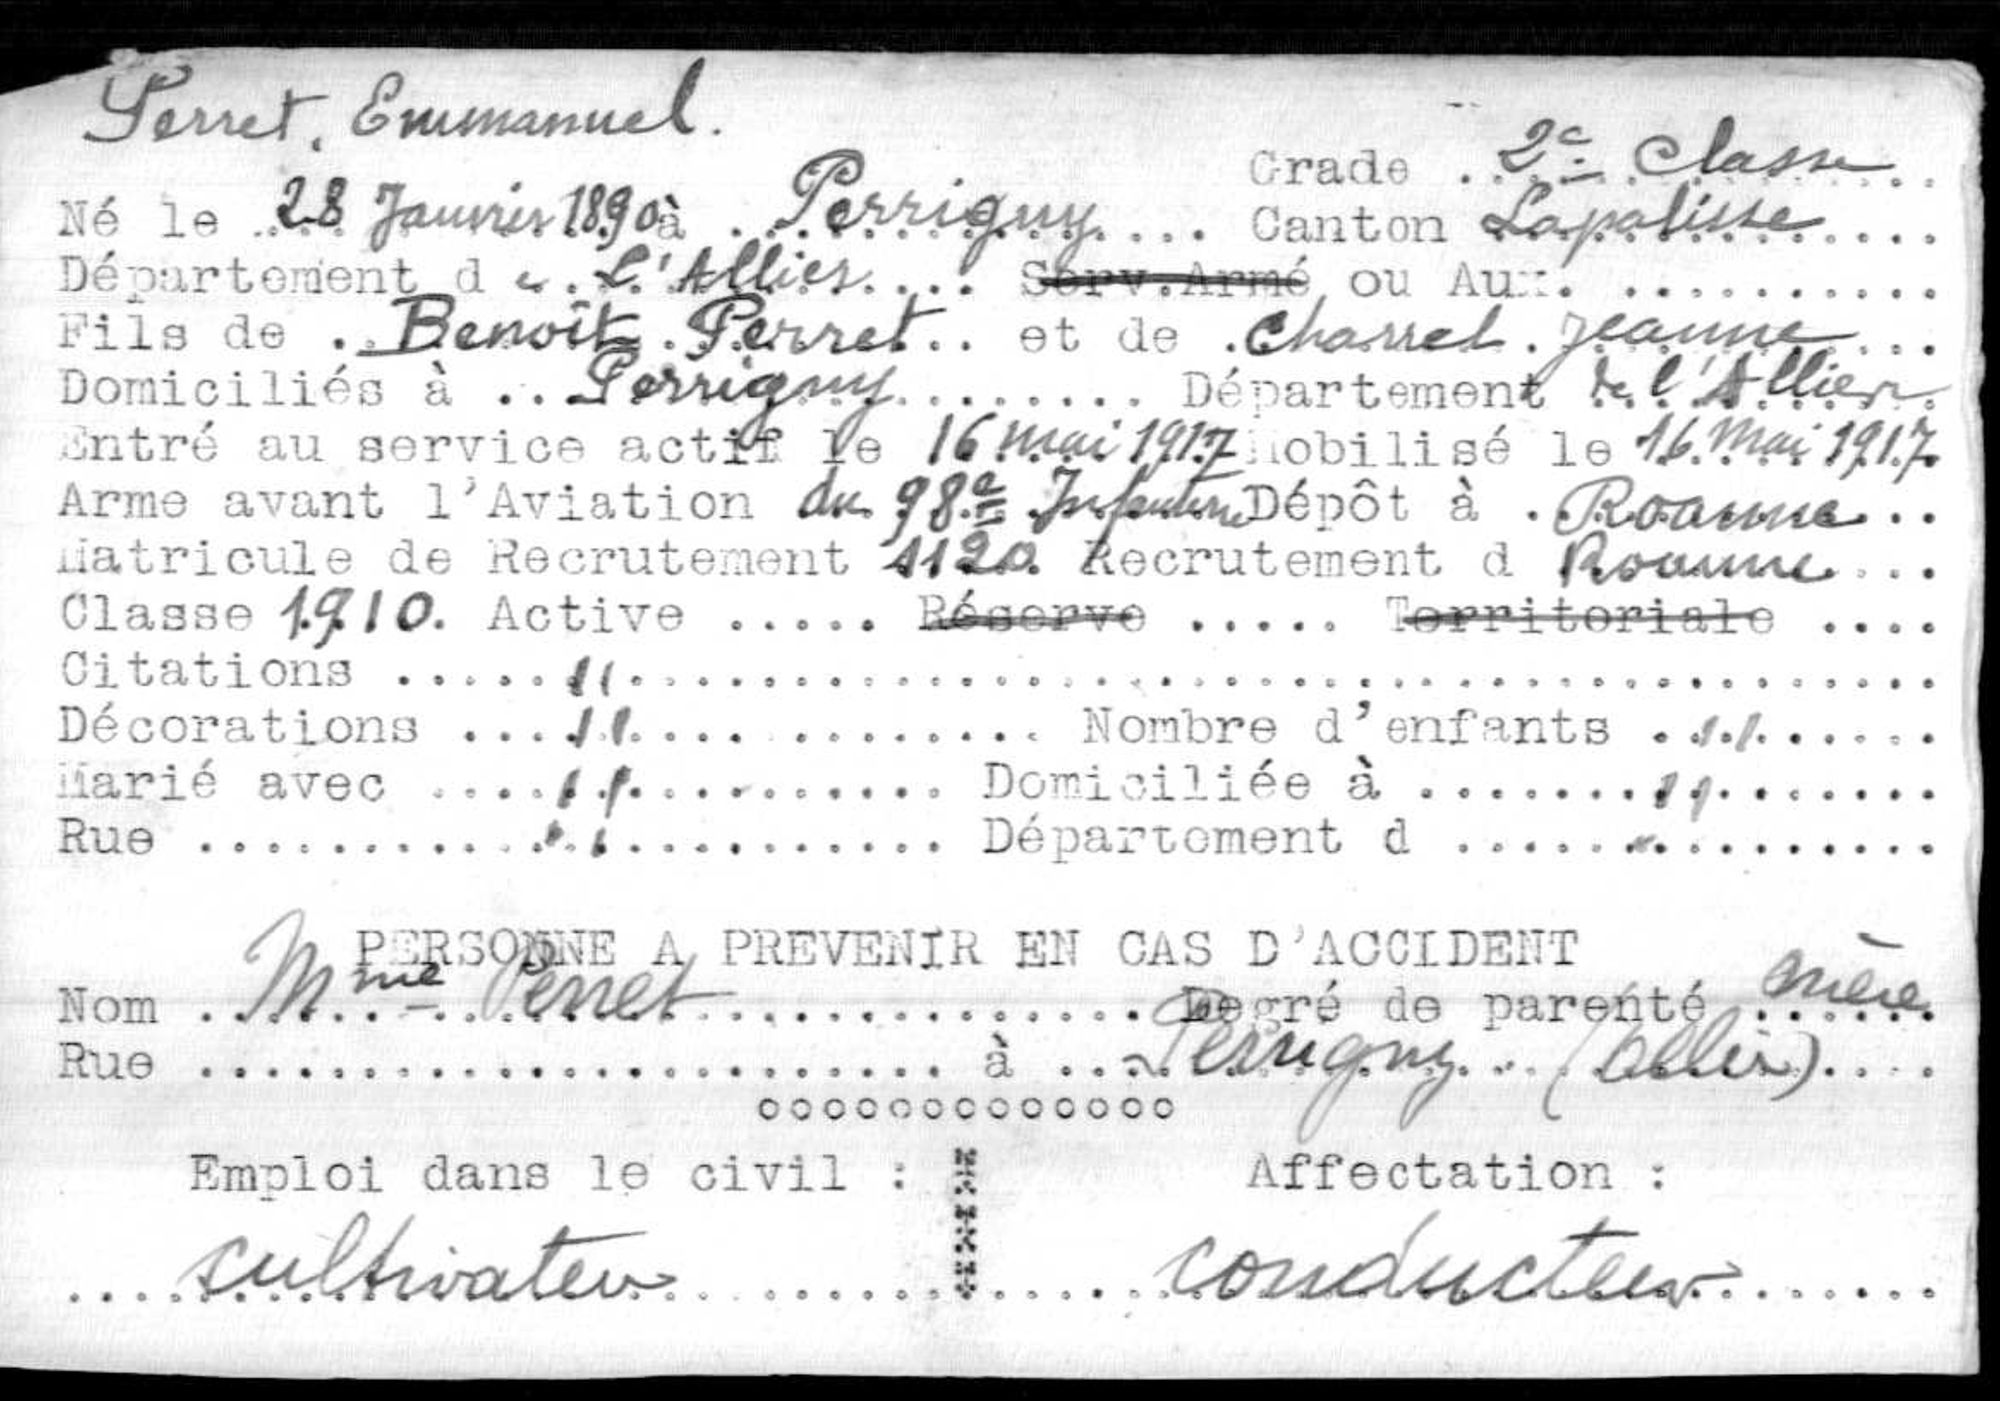 Perret, Emmanuel.
Grade .. 2e Classe
Né le 28 Janvier 1890 à Perrigny Canton Lapalisse
Département d e L'Allier Serv.Armé ou Aux.
Fils de Benoît Perret et de Charrel Jeanne
Domiciliés à Perrigny Département de l'Allier
Entré au service actif le 16 mai 1917 Mobilisé le 16 Mai 1917
Arme avant l'Aviation du 98e Infanterie Dépôt à Roanne
Matricule de Recrutement 1120 Recrutement d Roanne
Classe 1910. Active ..... Réserve ..... Territoriale ....
Citations ..... " .....
Décorations .... " .... Nombre d'enfants . " .....
Marié avec .... " .... Domiciliée à ..... " .....
Rue ..... " ..... Département d ..... " .....
PERSONNE A PREVENIR EN CAS D'ACCIDENT
Nom Mme Perret Degré de parenté mère
Rue ..... à Perrigny (Allier)
ooooooooooooo
Emploi dans le civil : Affectation :
cultivateur conducteur